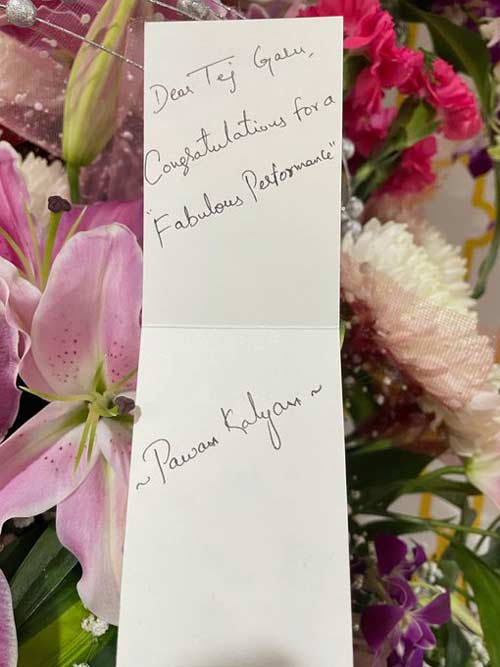 Dear Tej Garu,
Congratulations for a
"Fabulous Performance"
~ Pawan Kalyan ~